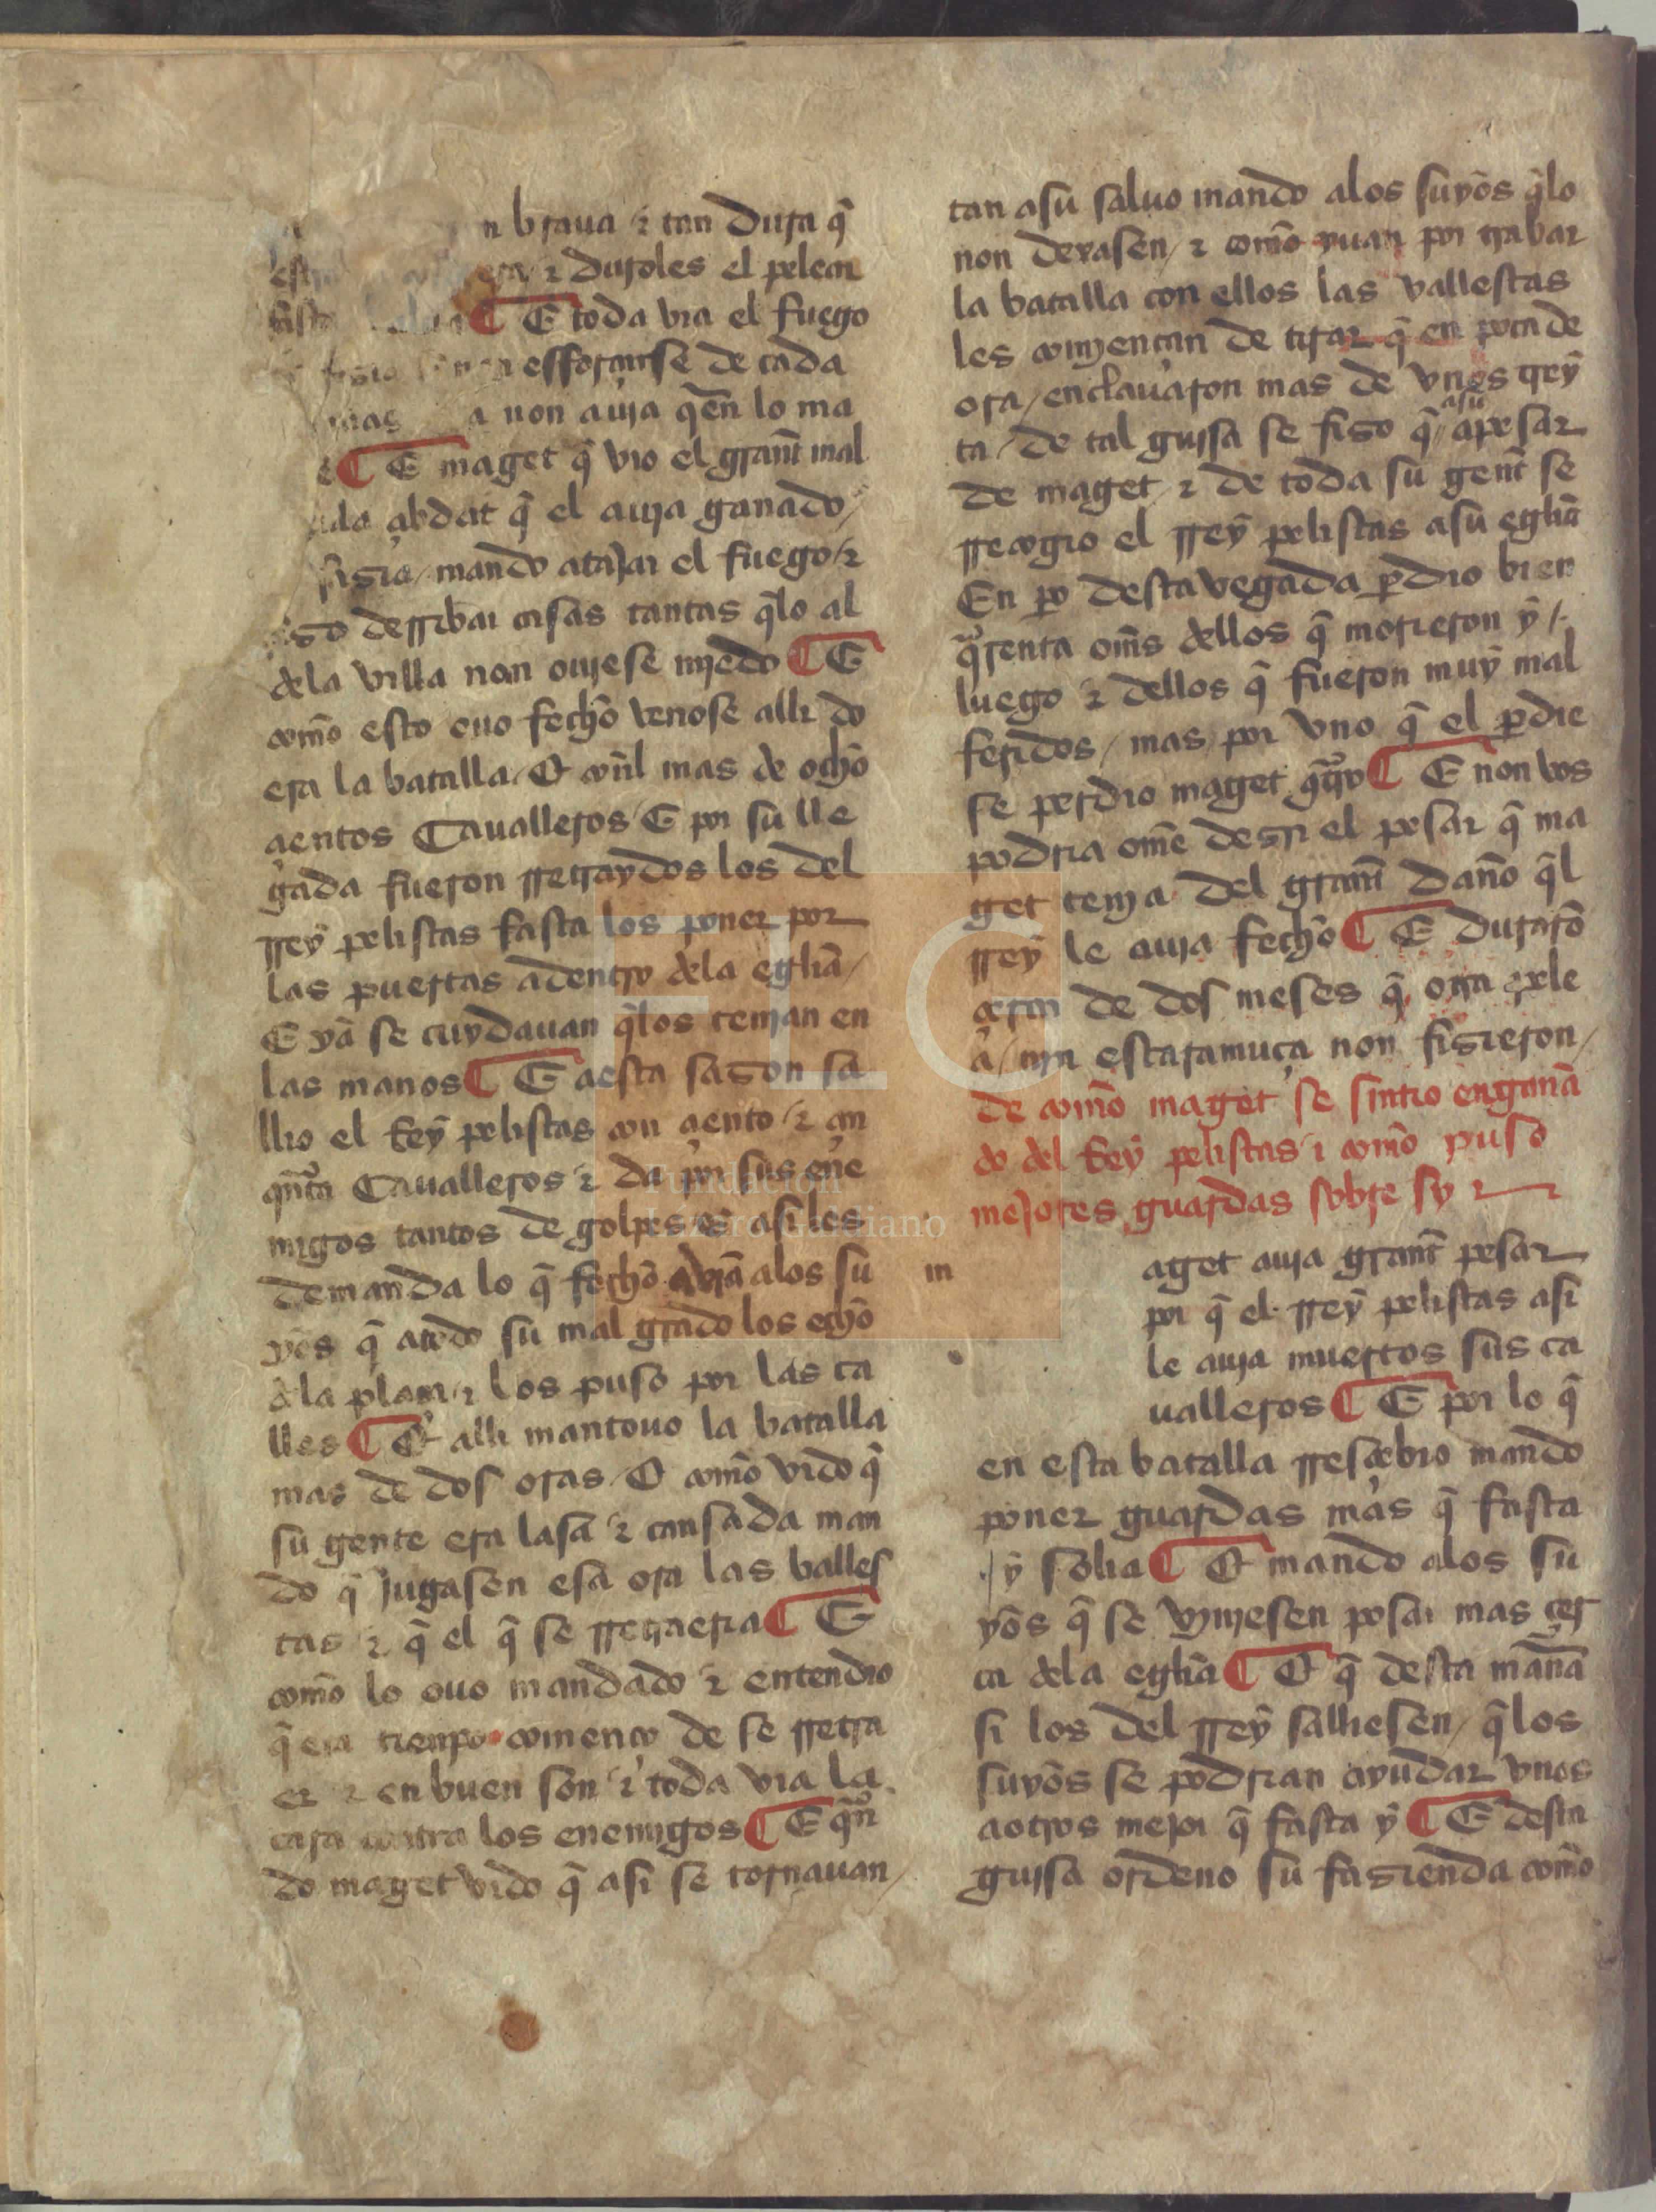 n braua & tan dura q̃
era & duroles el pelear
fasta ¶ E toda via el fuego
esforçarse de cada
mas a non auja qen lo ma
¶ E maget q̃ vio el grant̃ mal
çibdat q̃ el auja ganado /
mando atajar el fuego / &
derribar casas tantas q̃lo al
dela villa non oujese mjedo ¶ E
com̃o esto ouo fecho venose alli do
era la batalla / Et coñl mas de ocho
çientos Caualleros / E por su lle
gada fueron rretraydos los del
rrey pelistas fasta los poner por
las puertas adentro dela eglia͂ /
E ya se cuydauan q̃los tenjan en
las manos ¶ E a esta sazon sa
llio el Rey pelistas con çiento / & çin
qnta Caualleros & da por sus ene
migos tantos de golpes q̃ asi les
demanda lo q̃ fecho aujã alos su
yos q̃ atodo su mal grado los echo
ala plaça / & los puso por las ca
lles ¶ Et alli mantouo la batalla
mas de dos oras / Et com̃o vido q̃
su gente era lasa & cansada man
do q̃ jugasen esa ora las balles
tas & q̃ el q̃ se rretraeria ¶ E
com̃o lo ouo mandado & entendio
q̃ era tienpo començo de se rretra
er & en buen son & toda via la
cara contra los enemigos ¶ E qn
do maget vido q̃ asi se tornauan /
tan asu saluo mando alos suyos q̃lo
non dexasen / & com̃o yuan por trabar
la batalla con ellos las vallestas
les comjençan de tirar q̃ en poca de
ora / enclauaron mas de vnos trey
ta / de tal guisa se fizo q̃ // apesar
asu
de maget / & de toda su gent̃ se
rrecogio el rrey pelistas asu eglia͂
En po desta vegada pdio bien
qrenta om̃s dellos q̃ morieron y /.
luego & dellos q̃ fueron muy mal
feridos / mas por vno q̃ el pdie
se perdio maget qtro ¶ E non vos
podria ome dezir el pesar q̃ ma
get tenja del grant̃ daño q̃l
rrey le auja fecho ¶ E duraro͂
çerca de dos meses q̃ otra pele
a / njn escaramuça non fizieron /
de com̃o maget se sintio engaña
do del Rey pelistas & com̃o puso
mejores guardas sobre sy &
m
aget auja grant̃ pesar
por q̃ el rrey pelistas asi
le auja muertos sus ca
ualleros ¶ E por lo q̃
en esta batalla rresçebio mando
poner guardas mas q̃ fasta
y solia ¶ Et mando alos su
yos q̃ se vynjesen posar mas çer
ca dela eglia͂ ¶ Et q̃ desta mañã
si los del rrey salliesen / q̃ los
suyos se podrian ayudar vnos
aotros mejor q̃ fasta y ¶ E desta
guisa ordeno su fazienda com̃o